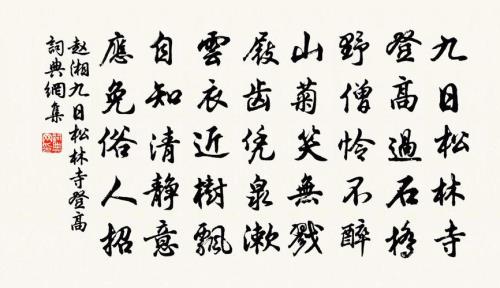 九日松林寺
登高過石橋
野僧怜不醉
山菊笑無戮
屐齿凭泉漱
雲衣近樹飄
自知清靜意
應免俗人招
赵湘九日松林寺登高
詞典網集